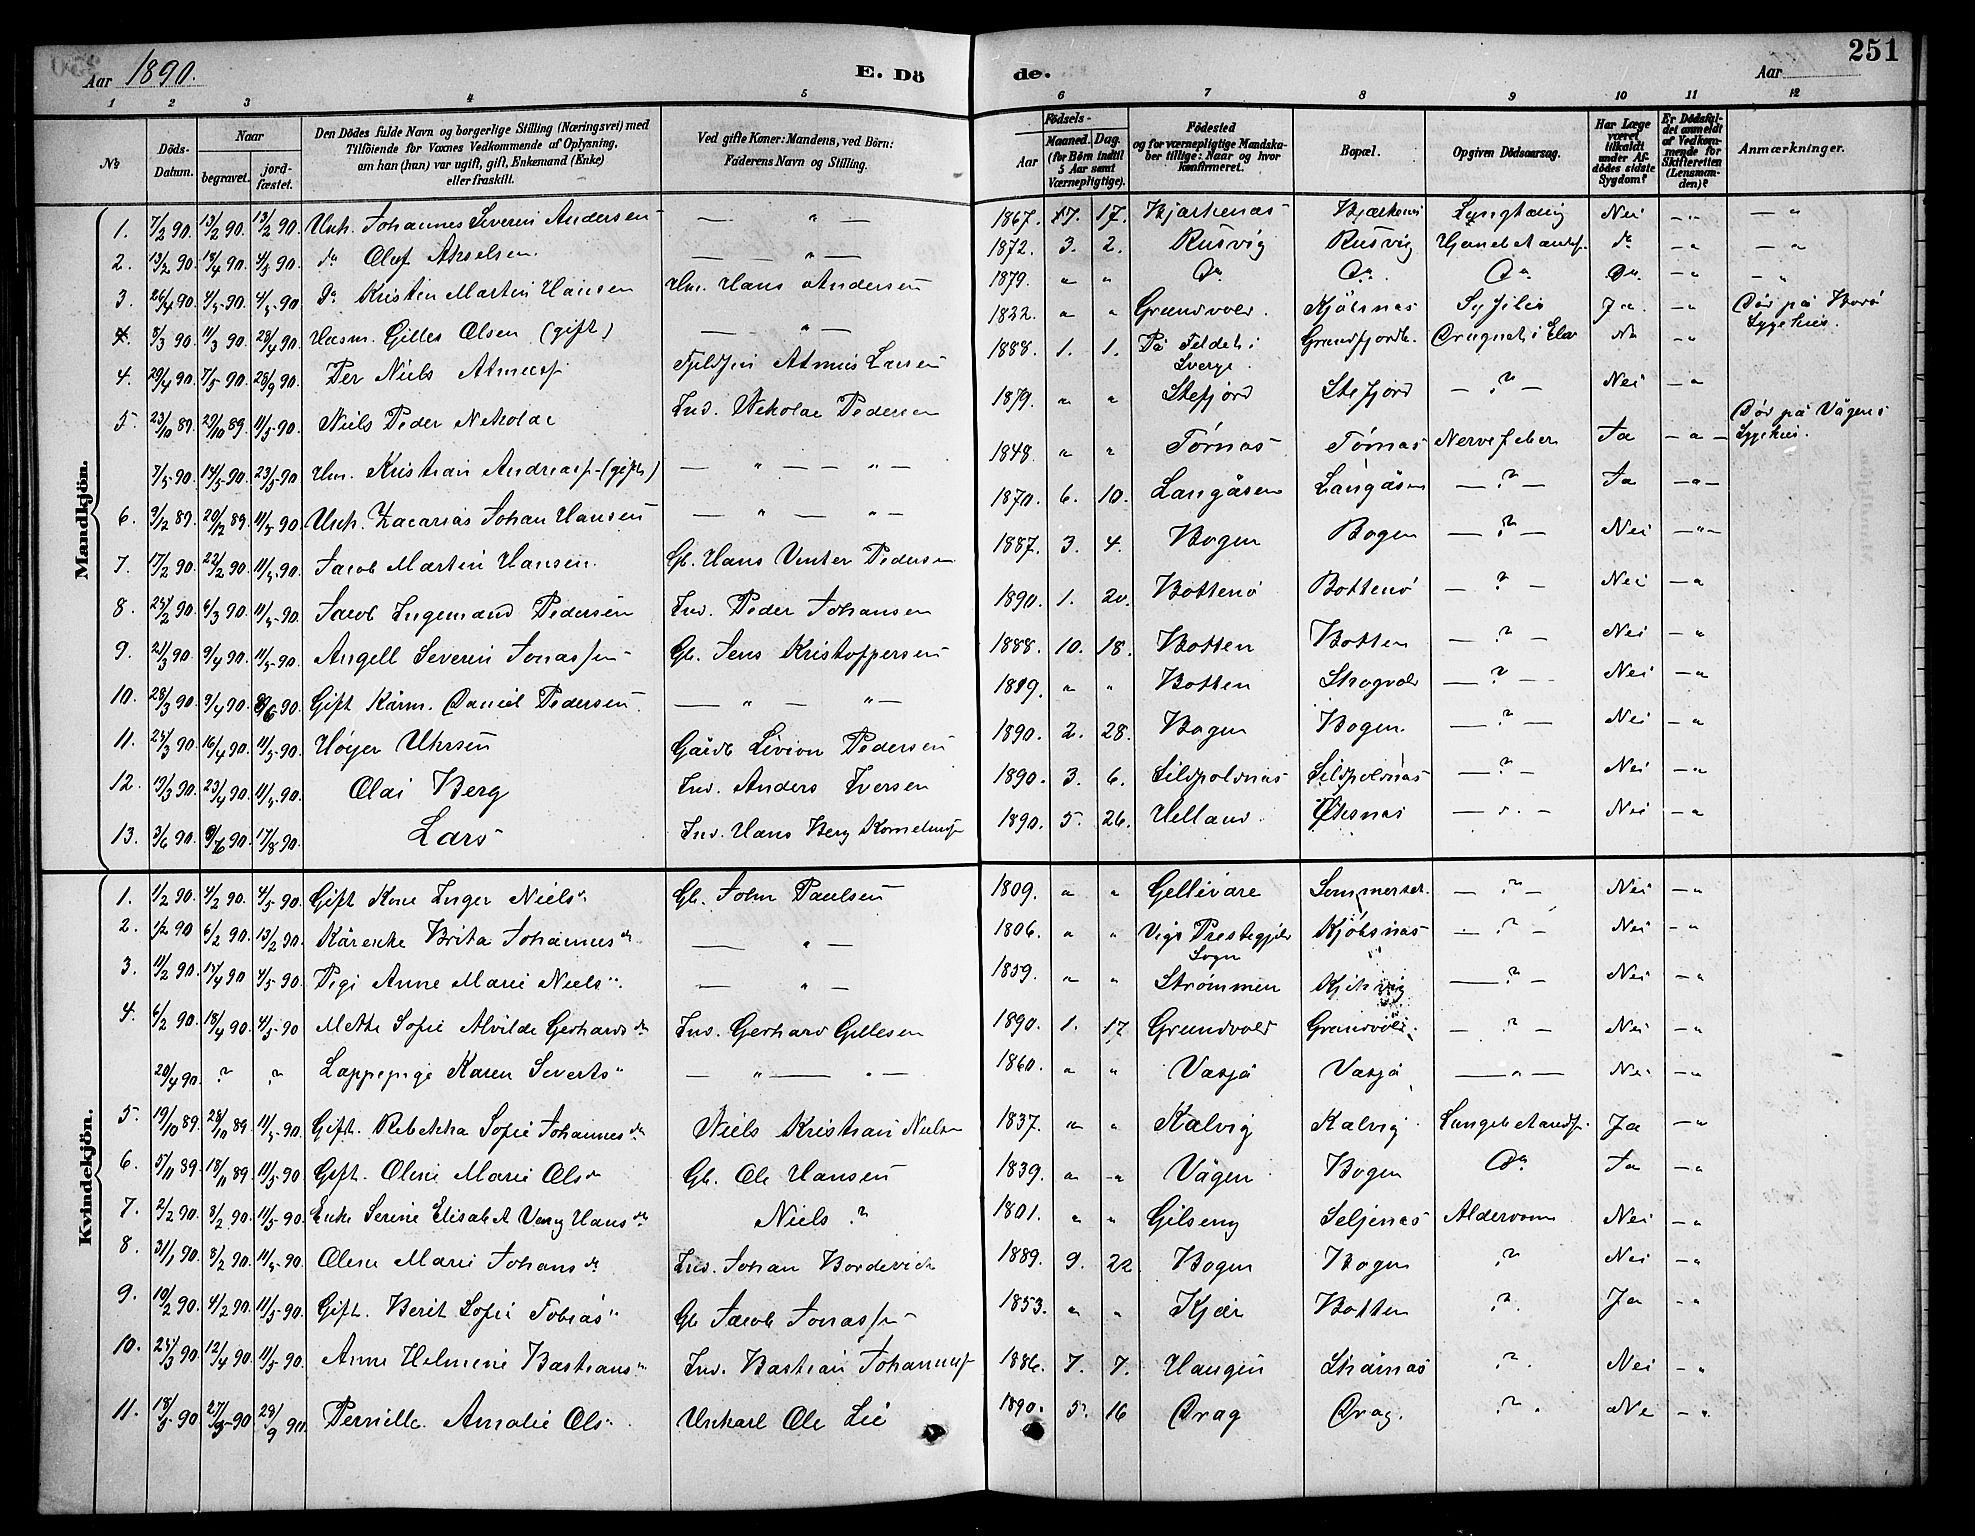 Aar 1890. E. Dö de. Aar 251
1 2 3 4 5 6 7 8 9 10 11 12
No
Döds-Datum.
Naar
begravet.
jord-fæstet.
Den Dödes fulde Navn og borgerlige Stilling (Næringsvei) med
Tilföiende for Voxnes Vedkommende af Oplysning,
om han (hun) var ugift, gift, Enkemand (Enke)
eller fraskilt.
Ved gifte Koner: Mandens, ved Börn:
Faderens Navn og Stilling.
Födsels-
Aar
Maaned. Dag.
(for Börn indtil
5 Aar samt
Værnepligtige).
Födested
og for værnepligtige Mandska-
ber tillige: Naar og hvor
konfirmeret.
Bopæl.
Opgiven Dödsaarsag.
Har Læge
været
tilkaldt
under Af-
dödes sidste
Sygdom?
Er Dödsfal-
det anmeldt
af Vedkom-
mende for
Skifteretten
(Lensman-
den)?
Anmærkninger.
Mandkjön.
1. 7/2 90. 13/2 90. 13/2 90. Unk. Johannes Severin Andersen — " — 1867. 7. 17. Kjærkenæs Nei — " — "
2. 13/2 90. 18/4 90. 4/5 90. do Oluf Akselsen — " — 1872. 3. 2. Rusvig Rusvig do — " — "
3. 26/4 90. 4/5 90. 4/5 90. Do Kristen Martin Hansen Hm. Hans Andersen 1879. " " Do Do Do Do — " — "
4. 8/3 90. 11/3 90. 28/4 90. Husm. Gilles Olsen (gift) — " — 1822. " " Grundvold. Kjölsnæs Syfilis Ja. — " Död på Bodö Sygehus.
4. 29/4 90. 7/5 90. 28/9 90. Per Niels 1888. 1. 1. På Feldet i Sverge. Nei — "
5. 23/10 89. 29/10 89. 11/5 90. Niels Peder Nikolai Ind. Nikolai Pedersen 1879. " " Stefjord Stefjord — ? — Nei — "
7/5 90. 14/5 90. 23/5 90 Hm. Kristian Andreas (gift) — " — — " — 1848. " " Tørnæs Tørnæs Nervefeber Ja — " — Död på Vågens Sygehus.
6. 9/12 89. 20/12 89. 11/5 90. Unk. Zacarias Johan Hansen — " — " — 1870. 6. 10. Langåsen Langåsen — ? — Ja — " —
7. 17/2 90. 22/2 90. 11/5 90. Jacob Martin Hansen. Gb. Hans Vinter Pedersen 1887. 3. 4. Bogen Bogen — ? — Nei — " —
8. 25/2 90. 6/3 90. 11/5 90. Jacob Ingemand Pedersen Ind. Peder Johansen 1890. 1. 20. Bottenö Bottenö — ? — Nei — "
9. 21/3 90. 9/4 90. 11/5 90. Angell Severin Jonassen Gb. Jens Kristoffersen 1888. 10. 18. Botten Botten — ? — Nei — "
10. 28/3 90. 9/4 90. 8/6 90. Gift Kårm. Daniel Pedersen — " — " — 1819. " " Botten — ? — Nei — "
11. 25/3 90. 16/4 90. 11/5 90. Høyer Gårdb Livion Pedersen 1890. 2. 28. Bogen Bogen. — ? — Nei — "
12. 19/3 90. 23/4 90. 11/5 90. Olai Berg Ind. Anders Iversen 1890. 3. 6. Sildpolnæs Sildpolnæs — ? — Nei — "
13. 3/6 90. 9/6 90. 17/8 90. Lars Ind. Hans Berg 1890. 5. 26. Helland Øksnæs — . — Nei — "
Kvindekjön.
1. 1/2 90. 4/2 90. 4/5 90. Gift Kone Inger Niels Gb. John Paulsen 1809. " " Gellivare Sommerset. — ? — Nei — "
2. 1/2 90 6/2 90. 13/2 90. Kårenke Brita Johannes d. — " — 1806. " " Viqs Prestegjeld Sogn Kjölsnæs — ? — Nei — "
3. 11/2 90. 15/4 90 4/5 90. Pige Anne Marie Niels — " — 1859. " " Strømmen — ? — Nei — "
4. 6/2 90. 18/4 90. 4/5 90 Mette Sofie Alvilde Gerhards d. Ind. Gerhard Gillesen 1890. 1. 17. Grundvold Grundvold — ? — Nei — "
20/4 90. ? ? Lappepige Karen Siverts — " — " — 1860. " " Vasja Vasja — " — Nei — "
5. 19/10 89. 28/10 89 11/5 90. Gift. Rebekka Sofie Johannes d. Niels Kristian Nielsen 1837. " " Kalvig Kalvig. Ja — "
6. 5/11 89. 18/11 89 11/5 90. Gift. Olene Marie Ols d. Gb. Ole Hansen 1839. " — " Vågen Bogen Do Ja — "
7. 2/2 90. 8/2 90. 11/5 90. Enke Serine Elisabet Hans d. Niels ? 1801. " " Seljenæs Alderdom Nei — "
8. 31/1 90. 8/2 90. 11/5 90. Olene Marie Johans d. Ind. Johan Bordevick 1889. 9. 22 Bogen Bogen ? Nei — "
9. 10/2 90. 4/2 90. 11/5 90. Gift. Berit Sofie Tobias Gb Jacob Jonassen 1853. " " Kjær Botten ? Ja — "
10. 25/3 90. 12/4 90. 11/5 90. Anne Helmine Bastians Ind. Bastian Johannes 1886. 7. 7. Haugen ? Nei — "
11. 18/5 90 27/5 90 28/9 90. Pernille Amalie Ols Unkarl Ole Lie 1890. 5. 16 Drag Drag. ? Nei — "